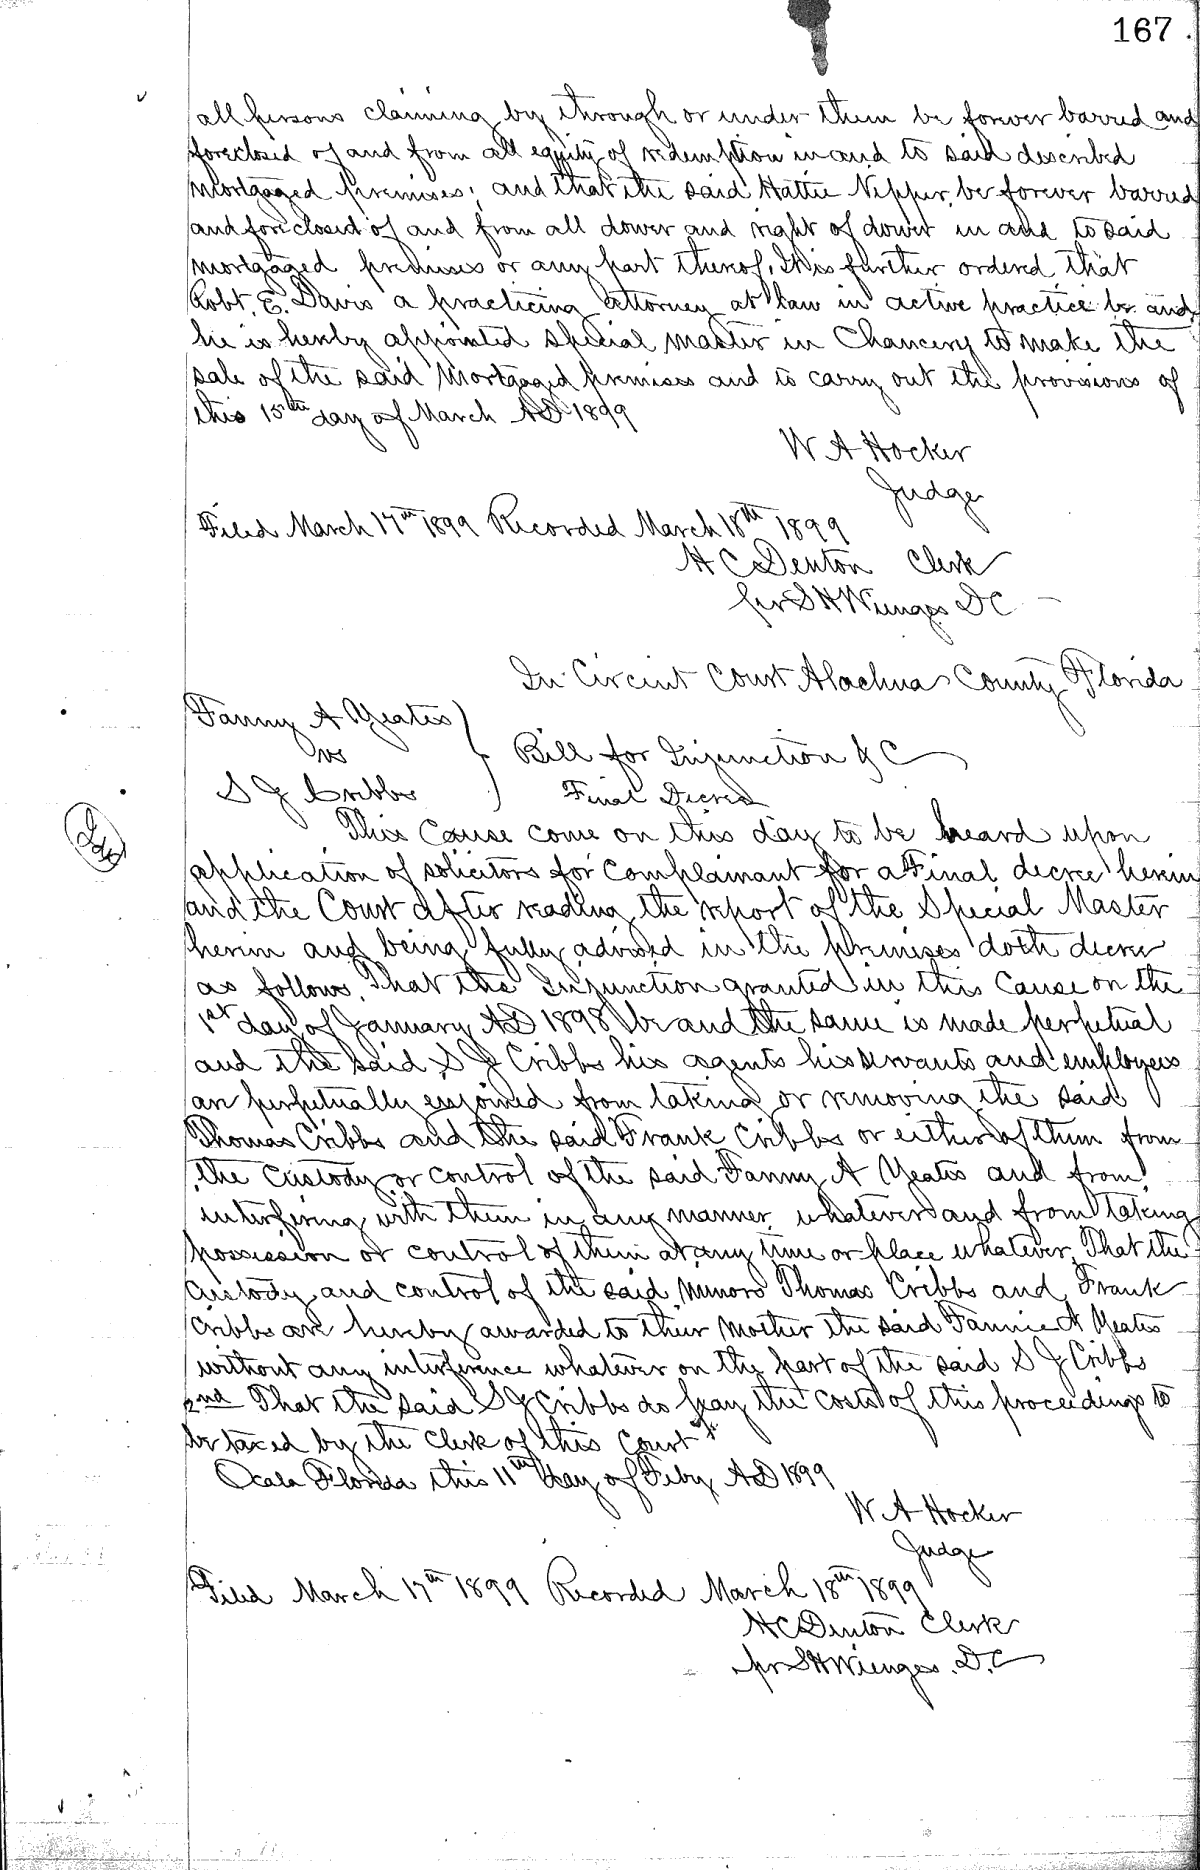 167.
all persons claiming by through or under them be forever barred and
foreclosed of and from all equity of redemption in and to said described
mortgaged premises, and that the said Hattie Nipper, be forever barred
and foreclosed of and from all dower and right of dower in and to said
mortgaged premises or any part thereof, It is further ordered that
Robt. E. Davis a practicing attorney at law in active practice be and
he is hereby appointed special master in Chancery to make the
sale of the said Mortgaged premises and to carry out the provisions of
this 15th day of March AD 1899
W A Hocker
Judge
Filed March 17th 1899 Recorded March 18th 1899
H C Denton Clerk
per S H Wienges D C
In Circuit Court Alachua County Florida
Fanny A Yeates
vs
Bill for Injunction & C
S J Cribbs
Final Decree
This Cause come on this day to be heard upon
application of solicitors for Complainant for a Final decree herein
and the Court after reading the report of the Special Master
herein and being fully advised in the premises doth decree
as follows, That the Injunction granted in this Cause on the
1st day of January AD 1898 be and the same is made perpetual
and the said S J Cribbs his agents his servants and employees
are perpetually enjoined from taking or removing the said
Thomas Cribbs and the said Frank Cribbs or either of them from
the Custody or control of the said Fanny A Yeates and from
interfering with them in any manner whatever and from taking
possession or control of them at any time or place whatever. That the
Custody and control of the said minors Thomas Cribbs and Frank
Cribbs are hereby awarded to their Mother the said Fannie A Yeates
without any interference whatever on the part of the said S J Cribbs
2nd That the said S J Cribbs do pay the costs of this proceedings to
be taxed by the Clerk of this Court
Ocala Florida this 11th day of Feby AD 1899
W A Hocker
Judge
Filed March 17th 1899 Recorded March 18th 1899
H C Denton Clerk
per S H Wienges. D.C